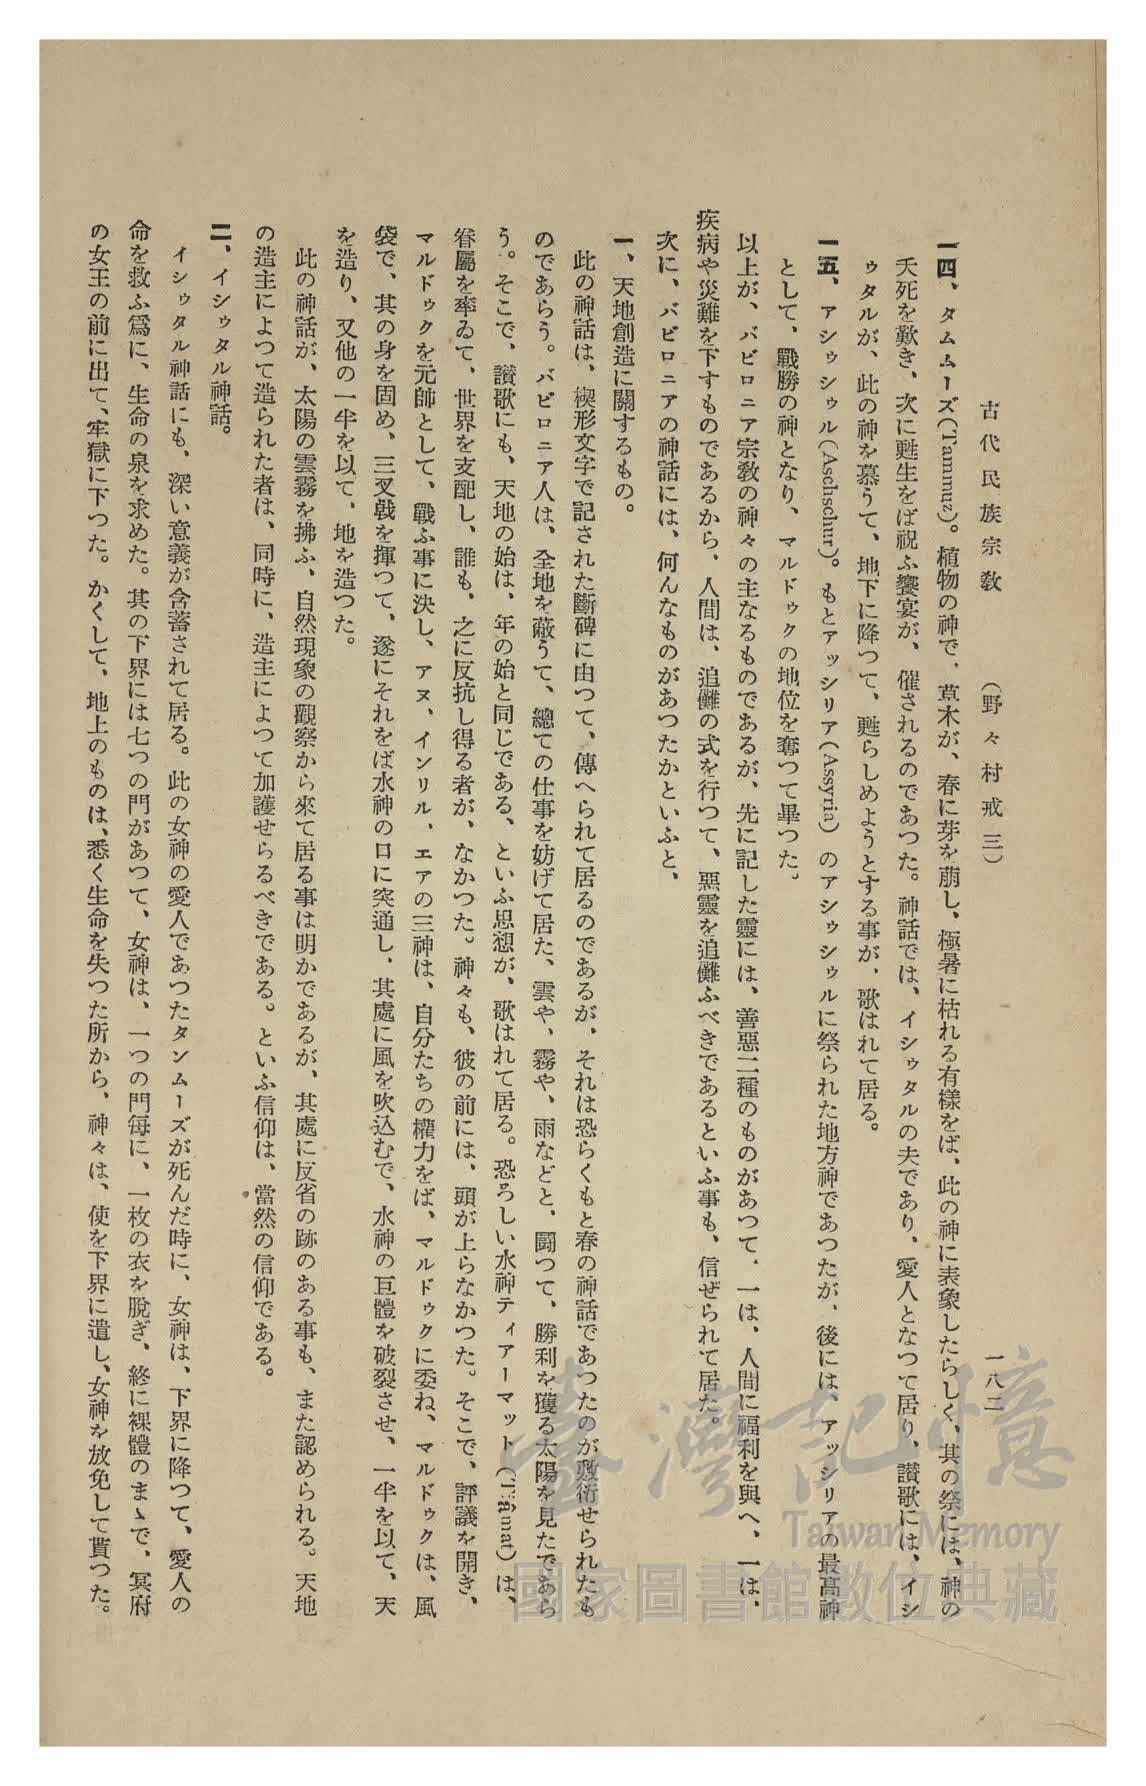 古代民族宗教　（野々村戒三）　一八二
一四、タムムーズ(Tammuz)。植物の神で、草木が、春に芽を萠し、極暑に枯れる有樣をば、此の神に表象したらしく、其の祭には、神の
夭死を歎き、次に甦生をば祝ふ饗宴が、催されるのであつた。神話では、イシゥタルの夫であり、愛人となつて居り、讃歌には、イシ
ゥタルが、此の神を慕うて、地下に降つて、甦らしめようとする事が、歌はれて居る。
一五、アシゥシゥル(Aschschur)。もとアッシリア(Assyria)のアシゥシゥルに祭られた地方神であつたが、後には、アッシリアの最高神
として、戰勝の神となり、マルドゥクの地位を奪つて畢つた。
以上が、バビロニア宗教の神々の主なるものであるが、先に記した靈には、善惡二種のものがあつて、一は、人間に福利を與へ、一は、
疾病や災難を下すものであるから、人間は、追儺の式を行つて、惡靈を追儺ふべきであるといふ事も、信ぜられて居た。
次に、バビロニアの神話には、何んなものがあつたかといふと、
一、天地創造に關するもの。
此の神話は、楔形文字で記された斷碑に由つて、傳へられて居るのであるが、それは恐らくもと春の神話であつたのが敷衍せられたも
のであらう。バビロニア人は、全地を蔽うて、總ての仕事を妨げて居た、雲や、霧や、雨などと、鬪つて、勝利を獲る太陽を見たであら
う。そこで、讃歌にも、天地の始は、年の始と同じである、といふ思想が、歌はれて居る。恐ろしい水神ティアーマット(Tiâmat)は、
眷屬を率ゐて、世界を支配し、誰も、之に反抗し得る者が、なかつた。神々も、彼の前には、頭が上らなかつた。そこで、評議を開き、
マルドゥクを元師として、戰ふ事に決し、アヌ、インリル、エアの三神は、自分たちの權力をば、マルドゥクに委ね、マルドゥクは、風
袋で、其の身を固め、三叉戟を揮つて、遂にそれをば水神の口に突通し、其處に風を吹込むで、水神の巨體を破裂させ、一半を以て、天
を造り、又他の一半を以て、地を造つた。
此の神話が、太陽の雲霧を拂ふ、自然現象の觀察から來て居る事は明かであるが、其處に反省の跡のある事も、また認められる。天地
の造主によつて造られた者は、同時に、造主によつて加護せらるべきである。といふ信仰は、當然の信仰である。
二、イシゥタル神話。
イシゥタル神話にも、深い意義が含蓄されて居る。此の女神の愛人であつたタンムーズが死んだ時に、女神は、下界に降つて、愛人の
命を救ふ爲に、生命の泉を求めた。其の下界には七つの門があつて、女神は、一つの門每に、一枚の衣を脫ぎ、終に裸體のまゝで、冥府
の女王の前に出て、牢獄に下つた。かくして、地上のものは、悉く生命を失つた所から、神々は、使を下界に遣し、女神を放免して貰つた。
臺灣記憶
Taiwan Memory
國家圖書館數位典藏